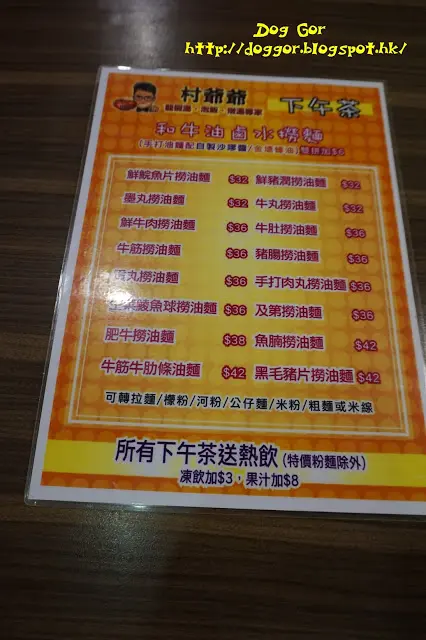 Dog Gor
http://doggor.blogspot.hk/
村爺爺
下午茶
和牛油鹵水撈麵
(手打油麵配自製沙爹醬/金選蠔油)雙拼加$6
鮮鯇魚片撈油麵 $32 鮮豬潤撈油麵 $32
墨丸撈油麵 $32 牛丸撈油麵 $32
鮮牛肉撈油麵 $36 牛肚撈油麵 $36
牛筋撈油麵 $36 豬腸撈油麵 $36
丸撈油麵 $36 手打肉丸撈油麵 $36
菜鯪魚球撈油麵 $36 及第撈油麵 $36
肥牛撈油麵 $38 魚腩撈油麵 $42
牛筋牛肋條油麵 $42 黑毛豬片撈油麵 $42
可轉拉麵/檬粉/河粉/公仔麵/米粉/粗麵或米線
所有下午茶送熱飲(特價粉麵除外)
凍飲加$3，果汁加$8